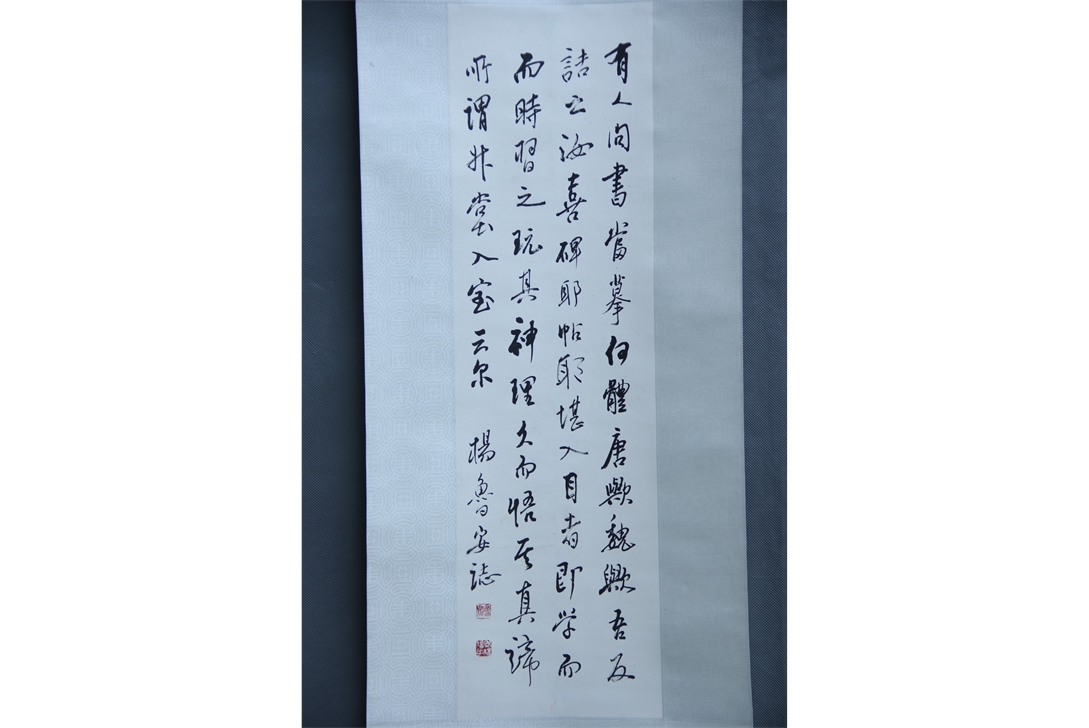 有人问書當摹何體唐歟魏歟吾反
詰云汝喜碑耶帖耶堪入目者即学而
而時習之玩其神理久而悟其真諦
所謂升堂入室云尔 楊魯安誌